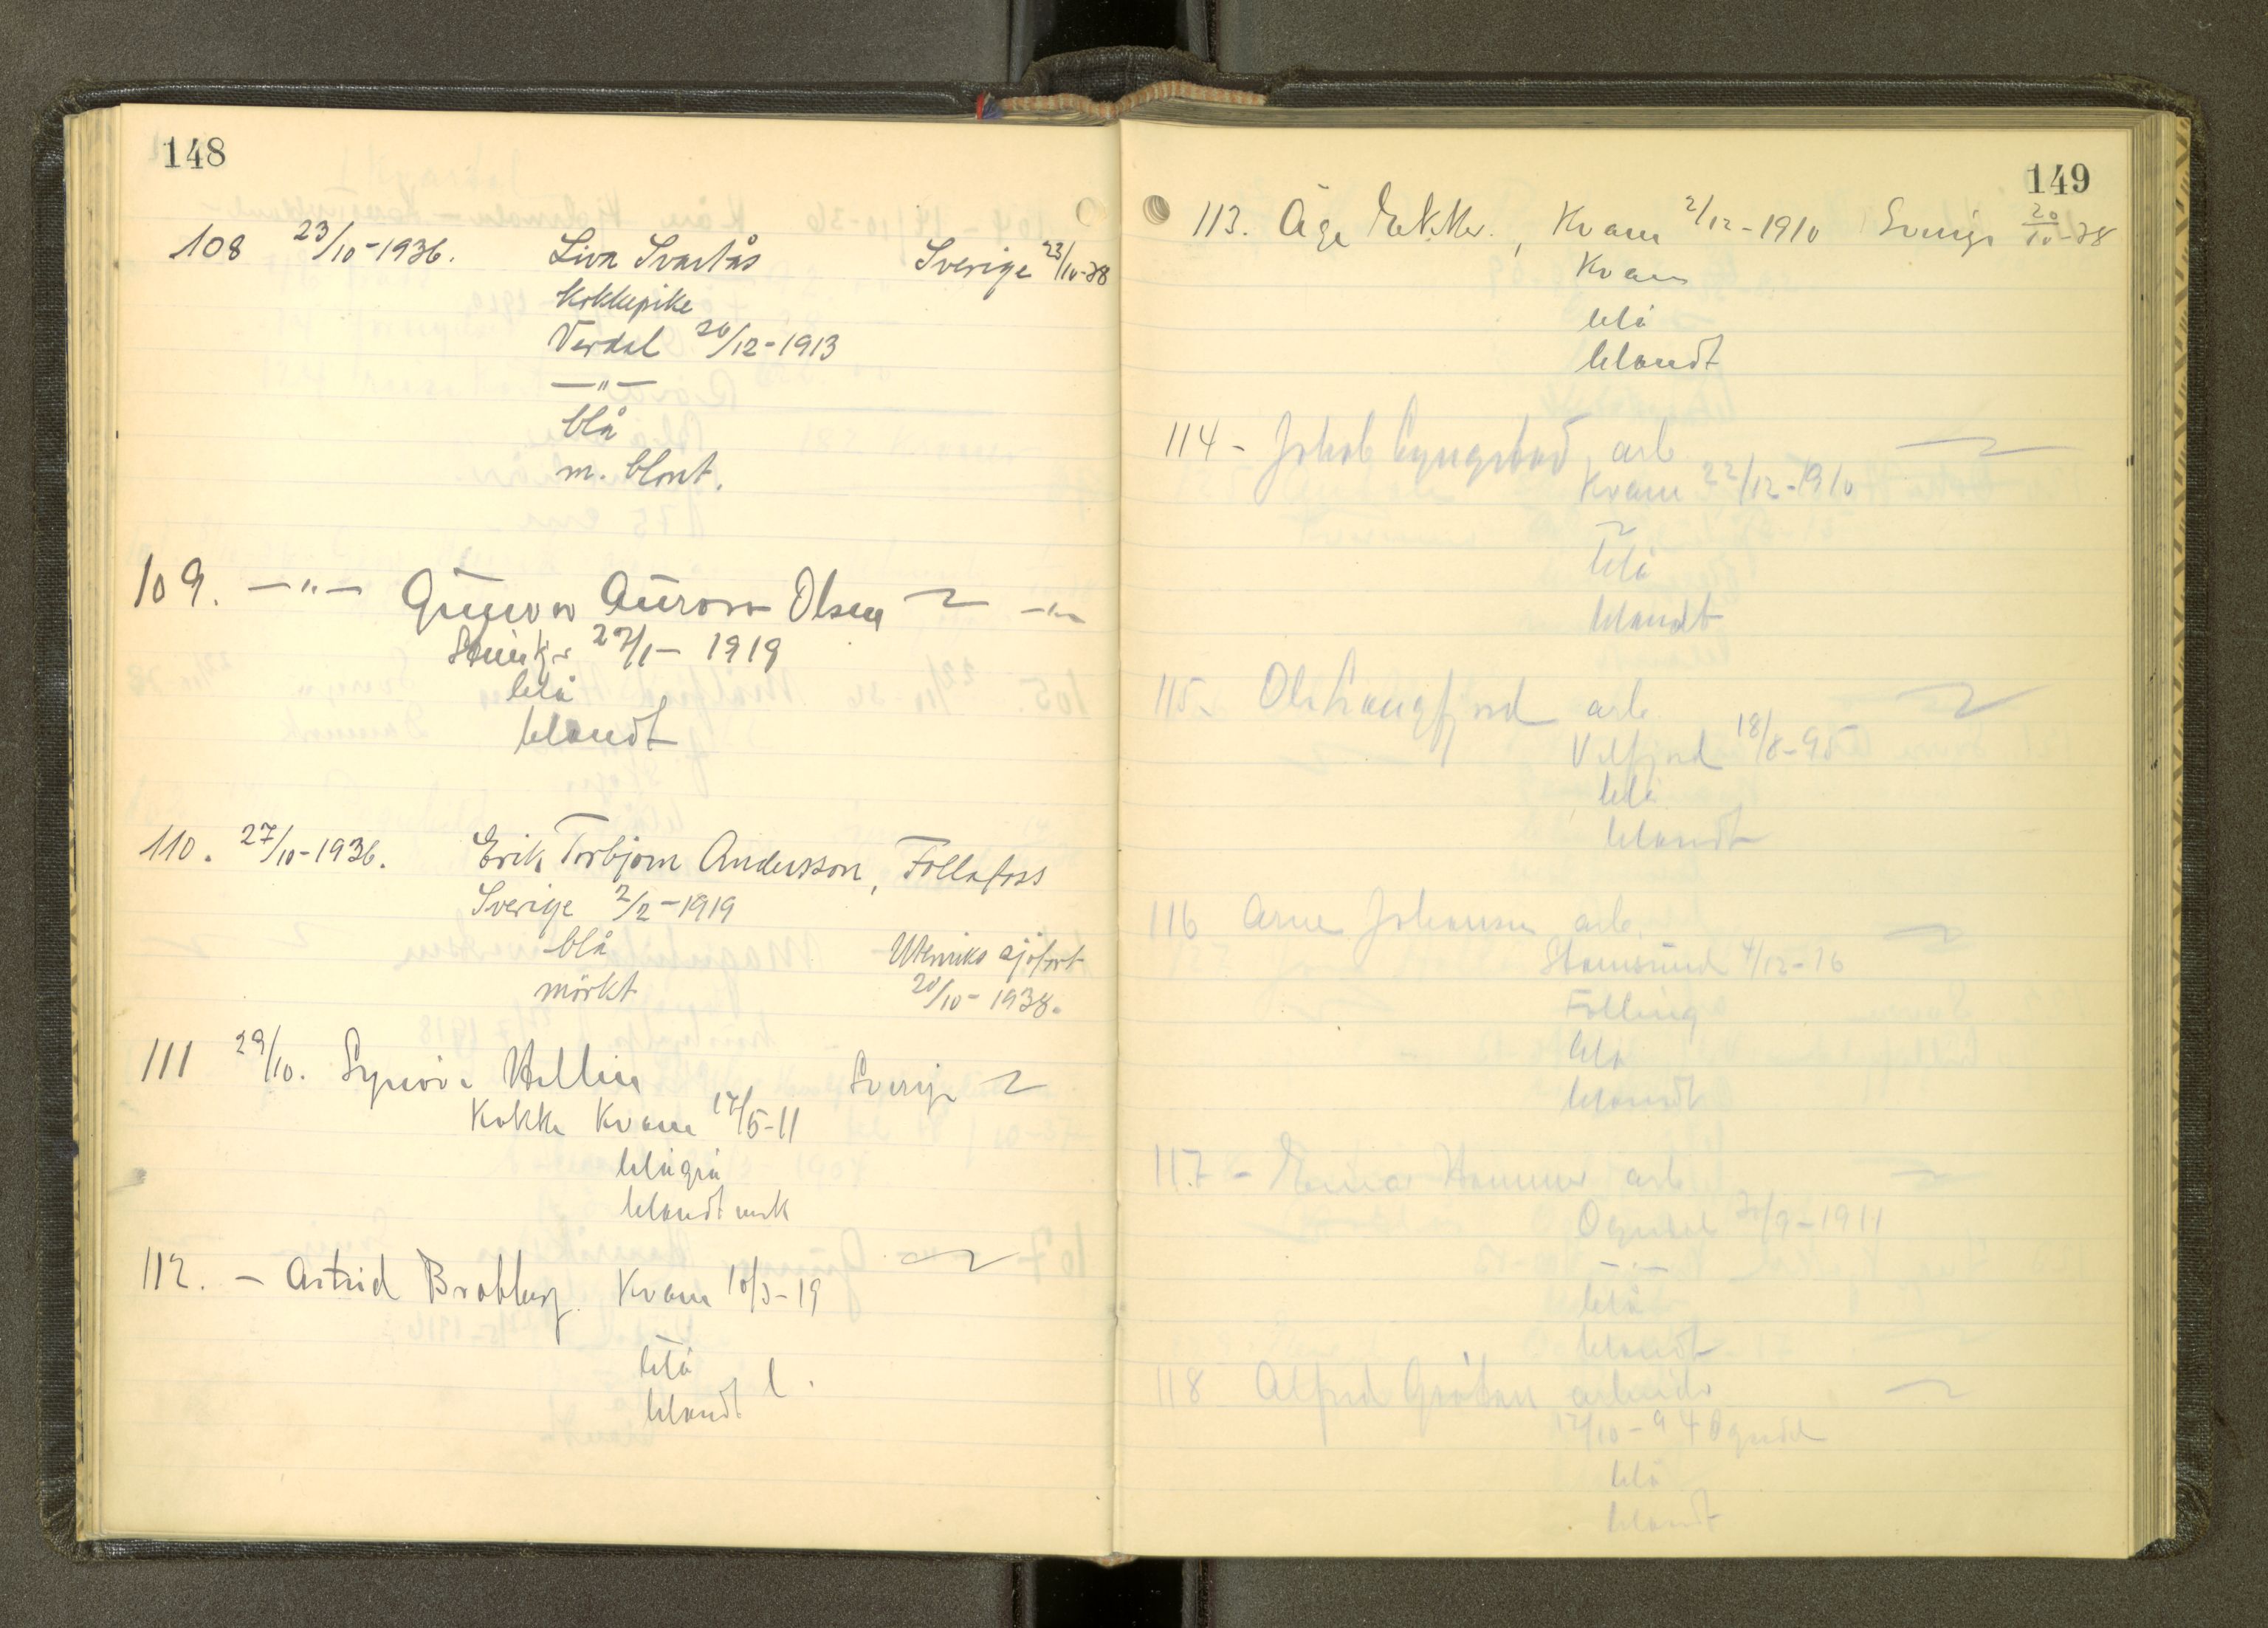 148
108 23/10-1936. Liva Svartås Sverige 23/10-38
Kokkepike
Verdal 20/12-1913
—"—
blå
m. blont.
109. —"— Gunvor Aurora Olsen —"—
27/1- 1919
blå
blondt
110. 27/10-1936. Erik Torbjørn Andersson, Follafoss
Sverige 2/2-1919
blå Utenriks sjøfart
mörkt 20/10-1938.
111 29/10. Synnöve Sverige
Kokke Kvam 17/5-11
blågrå
blondt mrk
112. - Astrid Kvam 10/3-19
blå
blondt l.
149
113. Åge Kvam 2/12-1910 Sverige 20/10-38
Kvam
blå
blondt
114- Jakob Lyngstad, arb
Kvam 22/12-1910
blå
blondt
115- Ole Langfjord arb
Velfjord 18/8-95
blå
blondt
116 Arne Johansen arb.
Stamsund 4/12-16
Følling
blå
blondt
117- Hammer arb
Ogndal /9-1911
—"—
blå
blondt
118 Alfred arbeider
17/10-94 Ogndal
blå
blondt